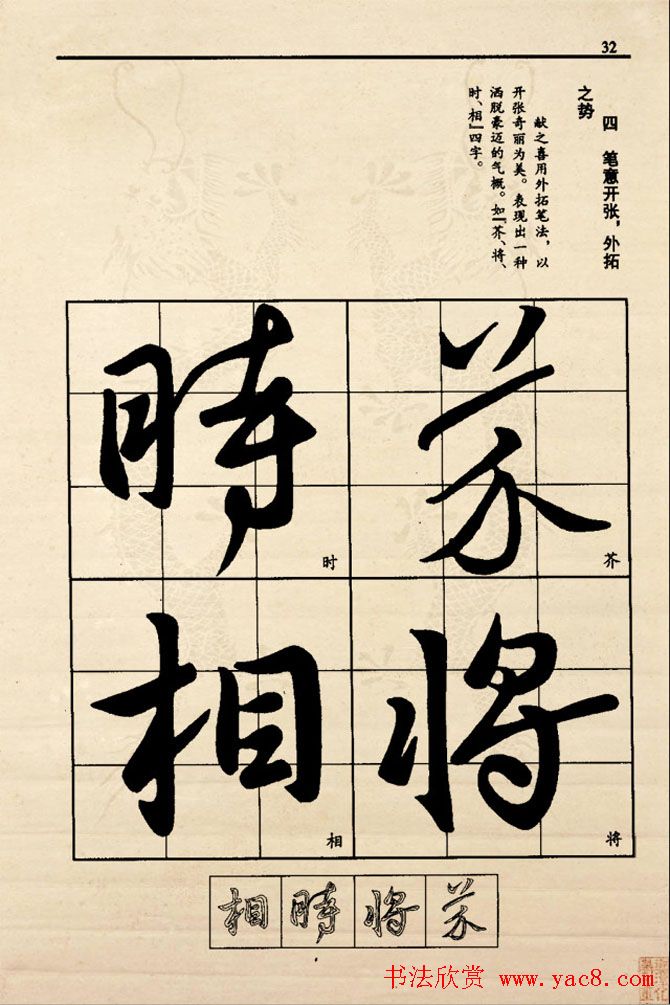 32
四　笔意开张，外拓
之势
献之喜用外拓笔法，以
开张奇丽为美。表现出一种
洒脱豪迈的气概。如『芥、将、
时、相』四字。
芥
芥
将
将
時
时
相
相
芥
将
時
相
书法欣赏 www.yac8.com